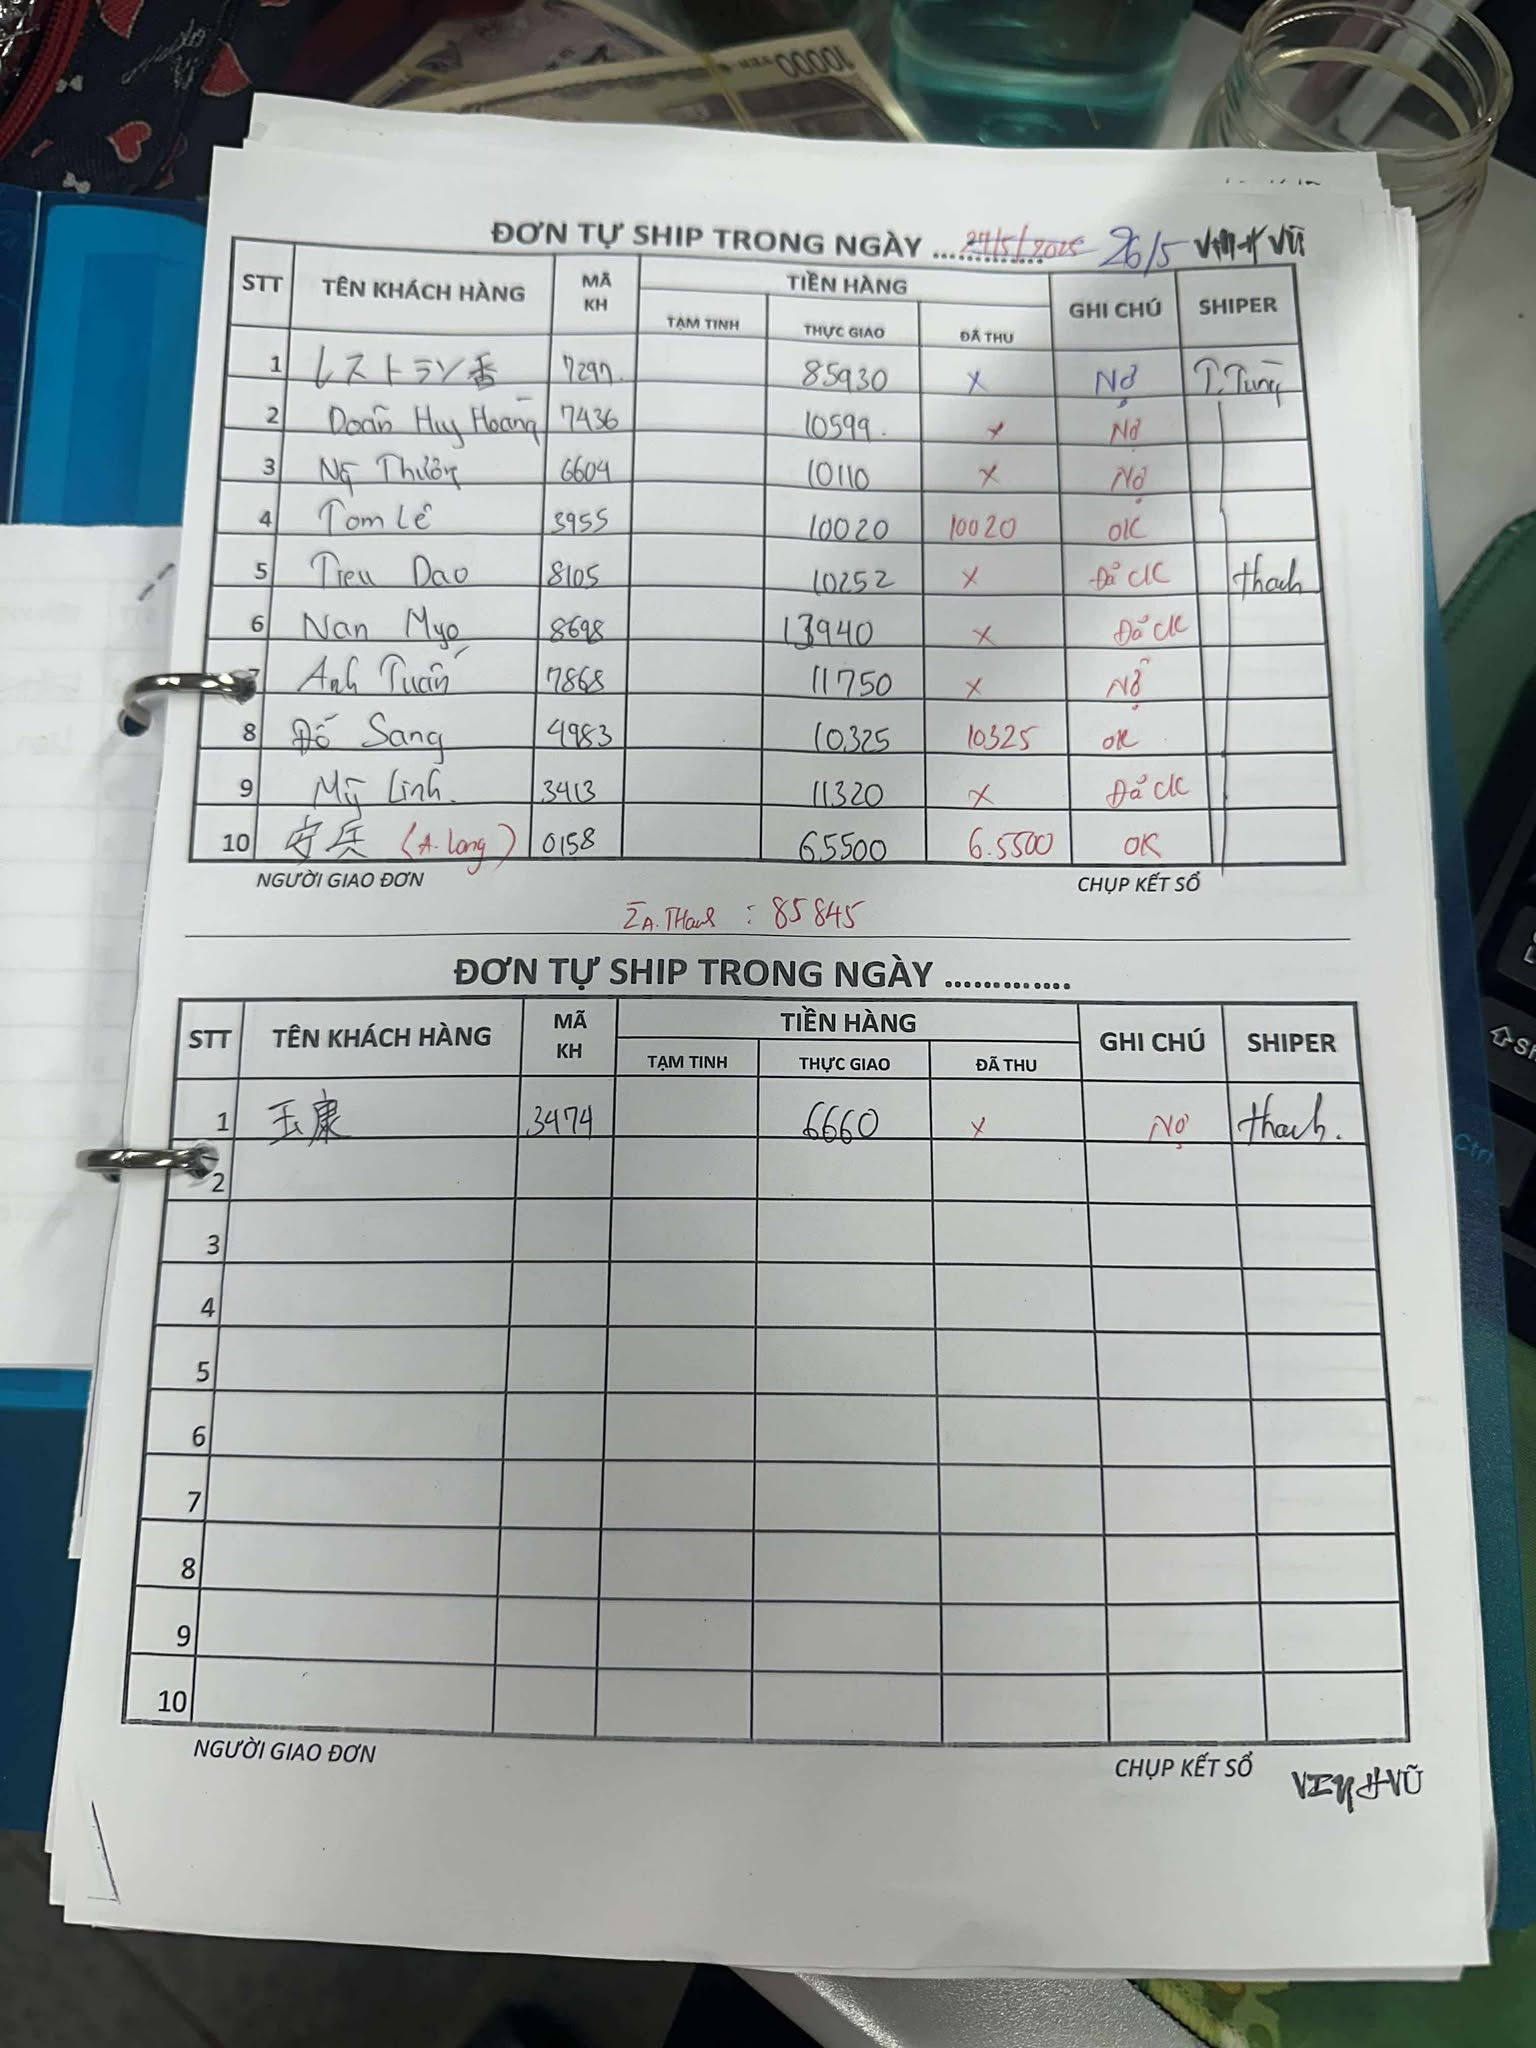 10000 YEN
ĐƠN TỰ SHIP TRONG NGÀY ............. 27/5/2025 26/5 VINH VŨ
STT TÊN KHÁCH HÀNG MÃ KH TIỀN HÀNG GHI CHÚ SHIPER
TẠM TINH THỰC GIAO ĐÃ THU
1 レストラン香 7297. 85930 x Nợ T.Tùng
2 Doãn Huy Hoàng 7436 10599. x Nợ
3 Ng Thương 6604 10110 x Nợ
4 Tom Lê 3955 10020 10020 OK
5 Tieu Dao 8105 10252 x Đã CK thach
6 Nan Myo 8698 13940 x Đã CK
7 Anh Tuấn 7868 11750 x Nợ
8 Đỗ Sang 4983 10325 10325 OK
9 Mỹ Linh. 3413 11320 x Đã CK
10 (A. Long) 0158 65500 6.5500 OK
NGƯỜI GIAO ĐƠN CHỤP KẾT SỔ
Σ A. THach : 85845
ĐƠN TỰ SHIP TRONG NGÀY .............
STT TÊN KHÁCH HÀNG MÃ KH TIỀN HÀNG GHI CHÚ SHIPER
TẠM TINH THỰC GIAO ĐÃ THU
1 玉康 3474 6660 x Nợ thach.
2
3
4
5
6
7
8
9
10
NGƯỜI GIAO ĐƠN CHỤP KẾT SỔ VINH VŨ
Ctrl